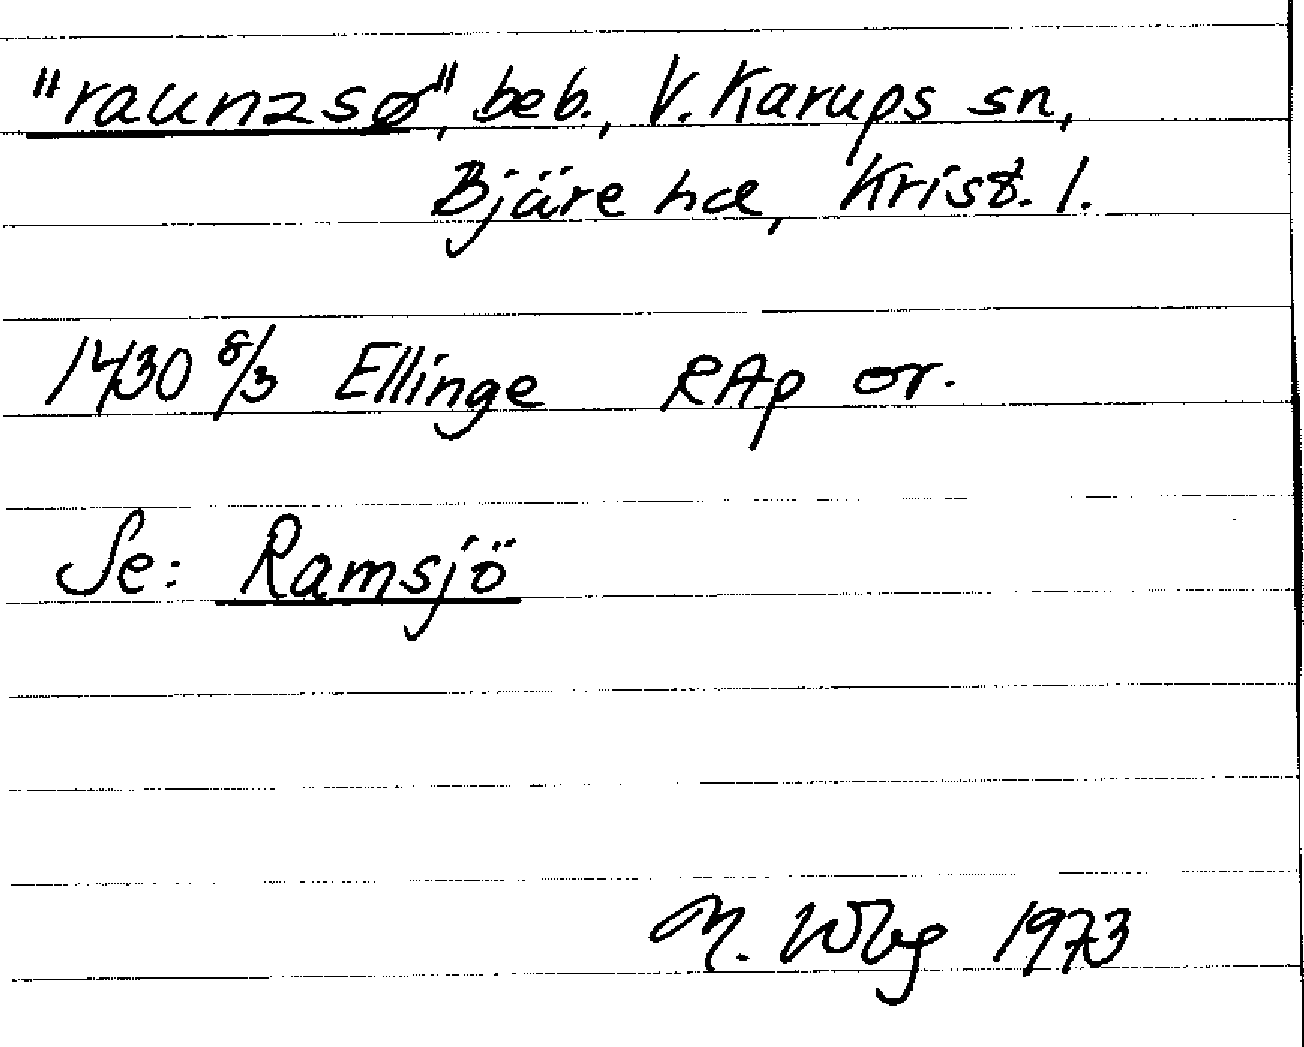 "raunzsø", beb., V. Karups sn,
Bjäre hd, Krist. l.
1430 8/3 Ellinge RAp or.
Se: Ramsjö
M. Wbg 1973